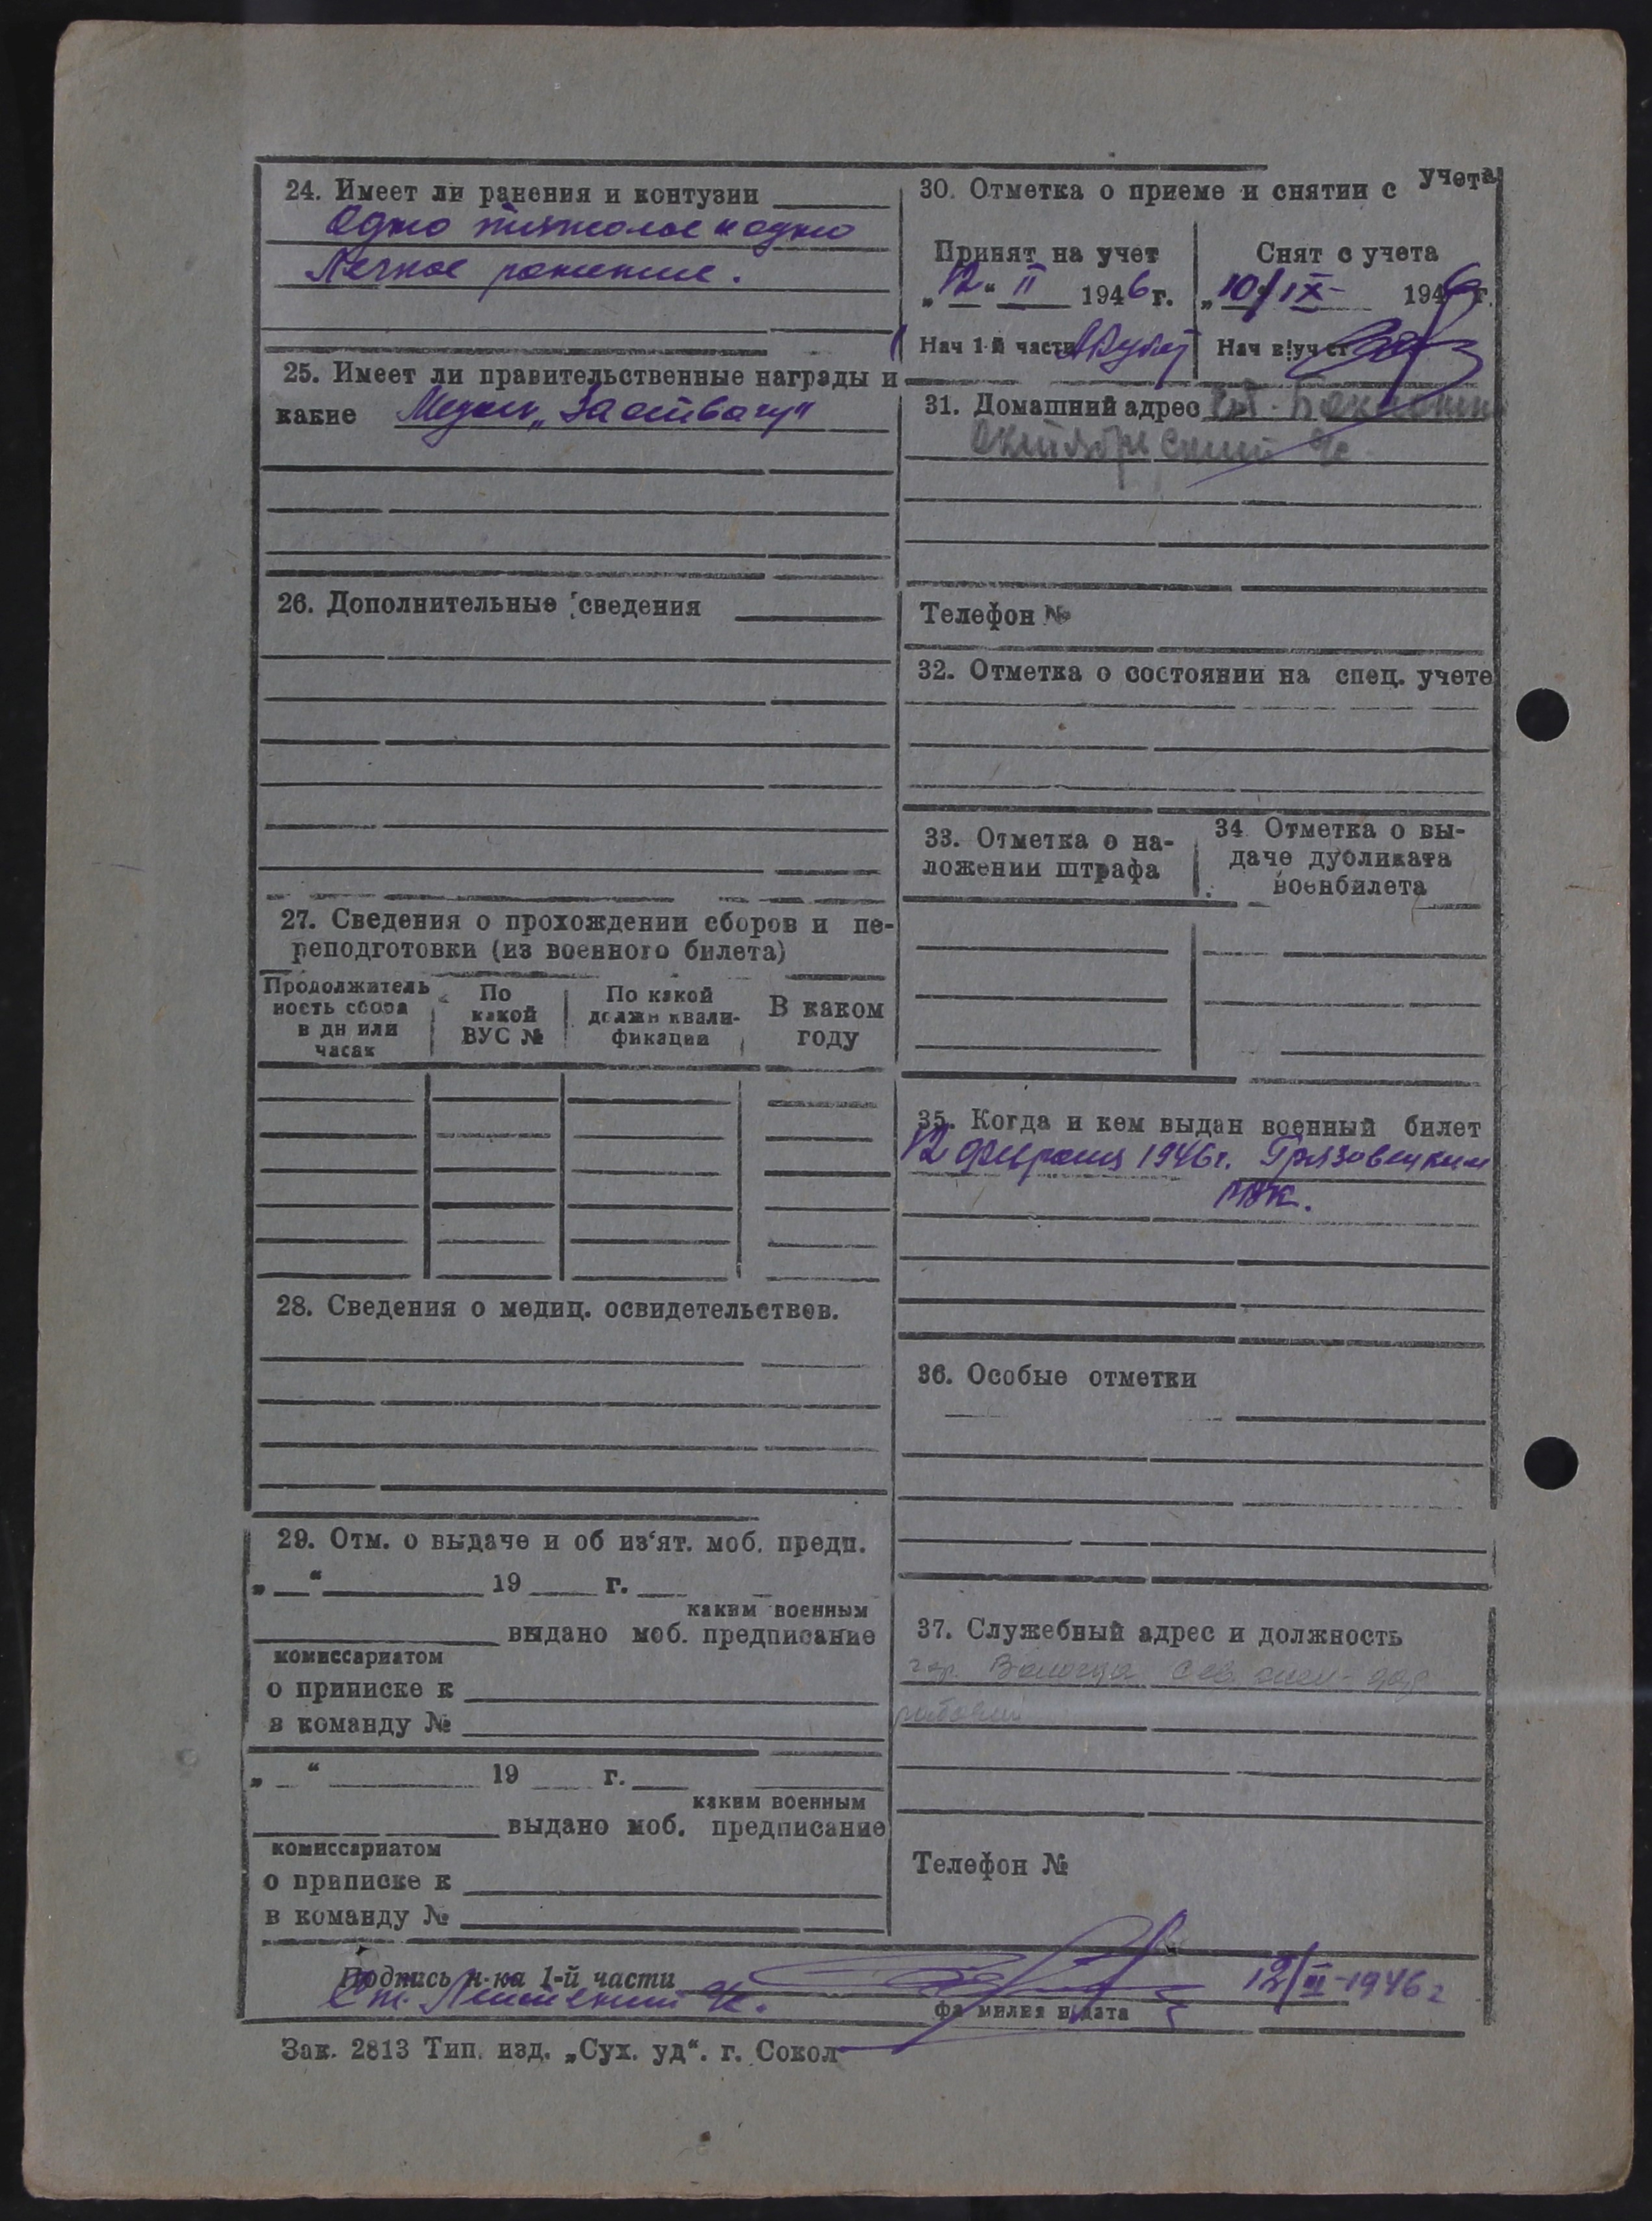 24. Имеет ли ранения и контузии
Одно тяжолое и одно
Легкое ранение.
25. Имеет ли правительственные награды и
какие Медаль „За отвагу"
26. Дополнительные сведения
27. Сведения о прохождении сборов и пе-
реподготовки (из военного билета)
Продолжитель
ность сбора
в дн или
часах
По
какой
ВУС №
По какой
должн квали-
фикации
В каком
году
28. Сведения о медиц. освидетельствов.
29. Отм. о выдаче и об из'ят. моб. предп.
„ “ 19 г.
каким военным
выдано моб. предписание
комиссариатом
о приписке к
в команду №
„ “ 19 г.
каким военным
выдано моб. предписание
комиссариатом
о приписке к
в команду №
30. Отметка о приеме и снятии с учета
Принят на учет
„12“ II 1946 г.
Нач 1-й части
Снят с учета
„10/IX- 1946 г.
Нач в!уч ст
31. Домашний адрес
Октябрьский
Телефон №
32. Отметка о состоянии на спец. учете
33. Отметка о на-
ложении штрафа
34 Отметка о вы-
даче дубликата
военбилета
35. Когда и кем выдан военный билет
12 февраля 1946г. Грязовецким
РВК.
36. Особые отметки
37. Служебный адрес и должность
гор. Вологда
рабочий
Телефон №
Подпись н-ка 1-й части
12/II-1946г
Ст. Лейтенант
фамилия и дата
Зак. 2813 Тип. изд. „Сух. уд“. г. Сокол